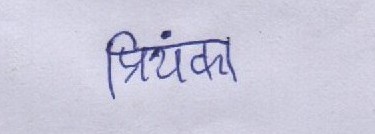 प्रियंका